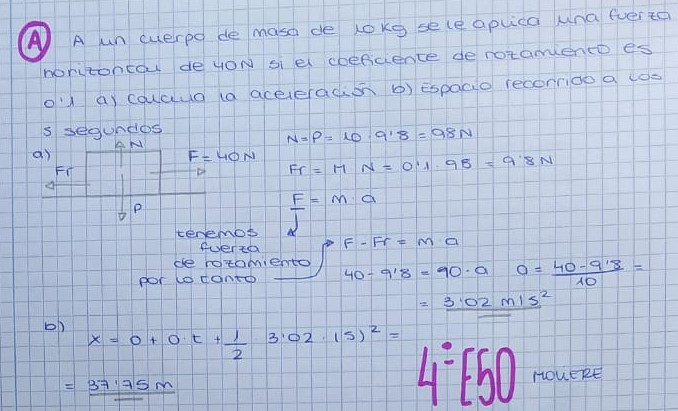 A A un cuerpo de masa de 10 Kg se le aplica una fuerza
horizontal de 40N si el coeficiente de rozamiento es
0'1 a) calcula la aceleración b) Espacio recorrido a los
5 segundos
a) N Fr F = 40N P
N=P= 10 · 9'8 = 98N
Fr = M N = 0'1 · 98 = 9'8N
F = m · a
tenemos
fuerza
de rozamiento
por lo tanto
F - Fr = m a
40 - 9'8 = 90 · a a = 40-9'8 / 10 =
= 3'02 m/s²
b)
x = 0 + 0 · t + 1/2 3'02 · (5)² =
= 37'75 m
4º ESO MOUERE